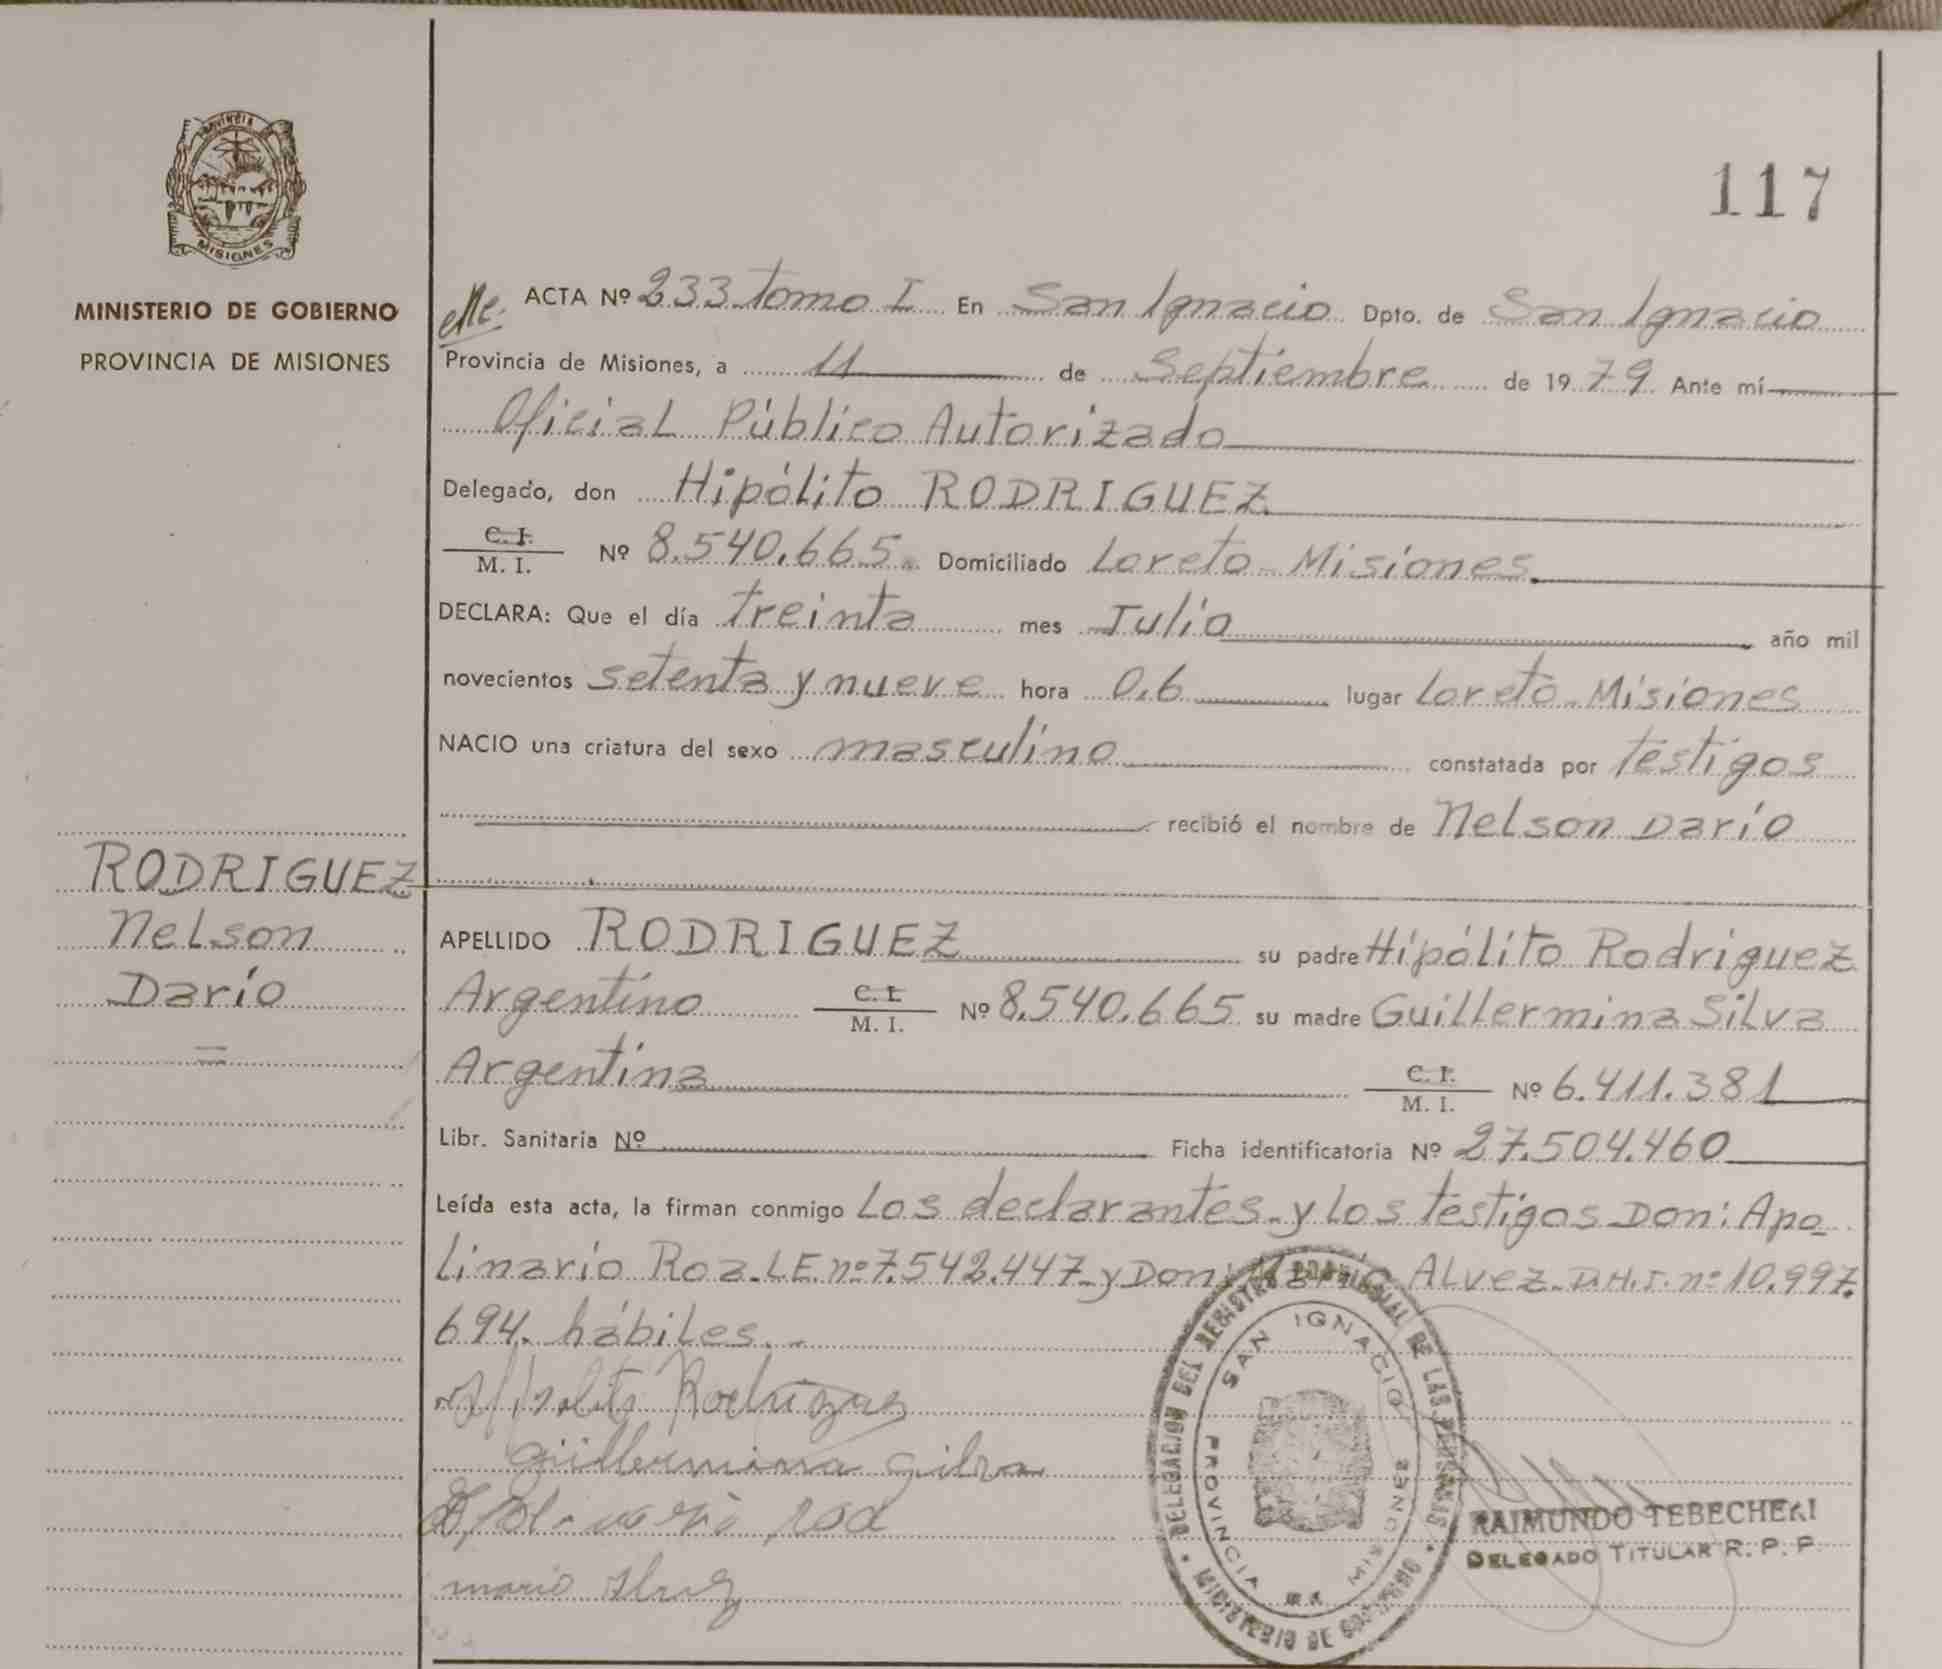 PROVINCIA
MISIONES
MINISTERIO DE GOBIERNO
PROVINCIA DE MISIONES
117
ACTA Nº 233 tomo I En San Ignacio Dpto. de San Ignacio
Provincia de Misiones, a 11 de Septiembre de 1979 Ante mí
Oficial Público Autorizado
Delegado, don Hipólito RODRIGUEZ
C. I.
M. I. Nº 8.540.665. Domiciliado Loreto - Misiones.
DECLARA: Que el día treinta mes Julio año mil
novecientos setenta y nueve hora 0.6 lugar Loreto - Misiones
NACIO una criatura del sexo masculino constatada por testigos
recibió el nombre de Nelson Darío
RODRIGUEZ
Nelson
Darío
APELLIDO RODRIGUEZ su padre Hipólito Rodriguez
Argentino C. I. M. I. Nº 8.540.665 su madre Guillermina Silva
Argentina C. I. M. I. Nº 6.411.381
Libr. Sanitaria Nº Ficha identificatoria Nº 27.504.460
Leída esta acta, la firman conmigo Los declarantes - y Los testigos Don: Apo
Linario Roa - LE nº 7.542.447 - y Don: ALvez - nº 10.997.
694. hábiles. -
Hipolito Rodriguez
Guillermina Silva
roa
mario
DELEGACION DEL REGISTRO PROVINCIAL DE LAS PERSONAS
MINISTERIO DE GOBIERNO
SAN IGNACIO
PROVINCIA DE MISIONES
RAIMUNDO TEBECHERI
DELEGADO TITULAR R. P. P.